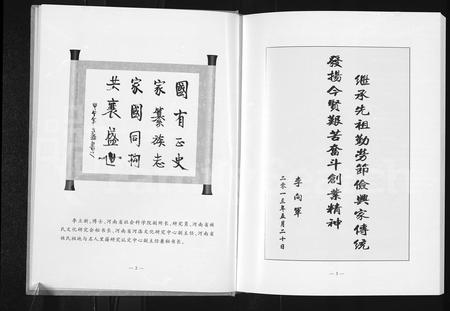 國有正史
家纂族志
家國同
共襄盛世
李立新,博士,河南省社会科学院副所长、研究员,河南省姓
氏文化研究会秘书长,河南省河洛文化研究中心副主任,河南省
姓氏祖地与名人里籍研究认定中心副主任兼秘书长。
— 2 —
繼承先祖勤勞節儉興家傳統
發揚今賢艱苦奮斗創業精神
李向軍
二零一三年五月二十日
— 3 —